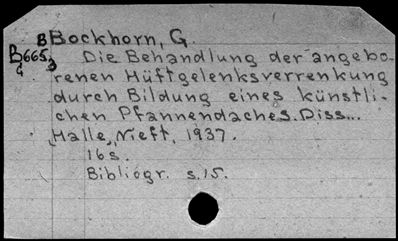 BBockhorn, G.
B665
G
Die Behandlung der angebo-
renen Hüftgelenksverrenkung
durch Bildung eines künstli-
chen Pfannendaches. Diss...
Halle, Nieft, 1937.
16s.
Bibliogr. s.15.